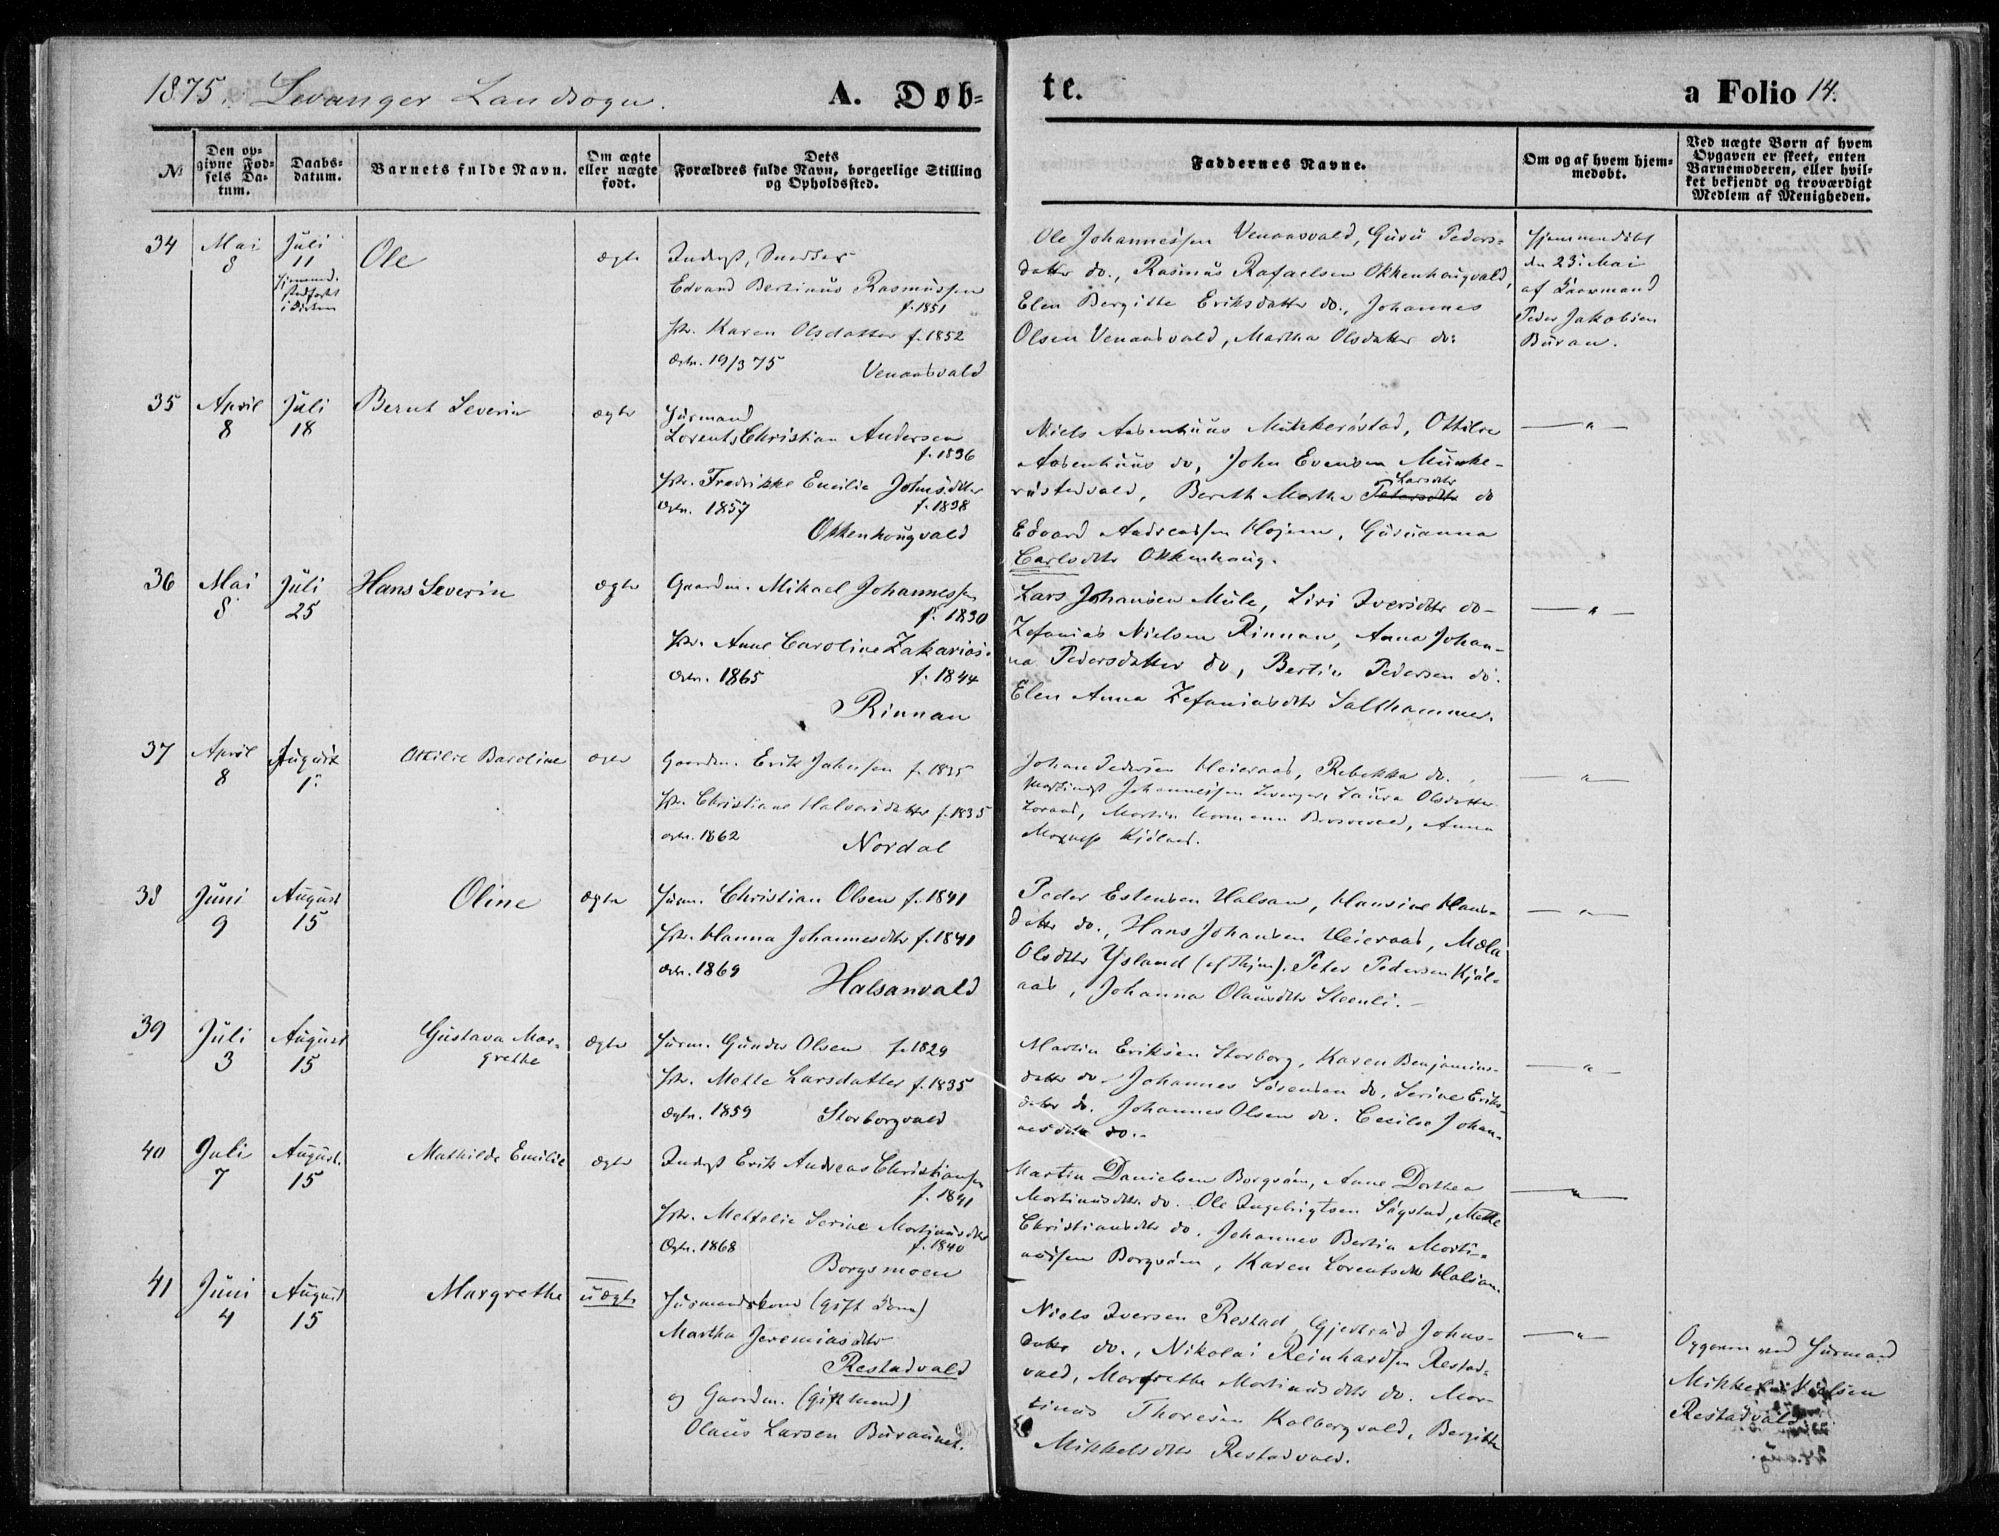 1875. Levanger Landsogn.
A. Døb-
te.
a Folio 14.
№
Den op-
givne Fød-
sels Da-
tum.
Daabs-
datum.
Barnets fulde Navn.
Om ægte
eller uægte
født.
Dets
Forældres fulde Navn, borgerlige Stilling
og Opholdssted.
Faddernes Navne.
Om og af hvem hjem-
medøbt.
Ved uægte Børn af hvem
Opgaven er skeet, enten
Barnemoderen, eller hvil-
ket bekjendt og troværdigt
Medlem af Menigheden.
34
Mai
8
Juli
11
stadfæstet
i Kirken
Ole
ægte
Inderst, Snedker
Edvard Bertinus Rasmussen
f. 1851
Karen Olsdatter f. 1852
19/3 75
Venaasvald
Ole Johannessen Venaasvald, Guru Peders-
datter do., Rasmus Rafaelsen Okkenhaugvald,
Elen Bergitte Eriksdatter do., Johannes
Olsen Venaasvald, Martha Olsdatter do.
Hjemmedøbt
den 23. Mai
af Gaarmand
Peder Jakobsen
Buran.
35
April
8
Juli
18
Bernt Severin
ægte
Husmand
Lorents Christian Andersen
f. 1836
Fredrikke Emilie Johnsdtter
1857 f. 1838
Okkenhougvald
Niels Asbenhuus Munkerøstad, Ottilie
Asbenhuus do, John Evensen Munke-
røstadvald, Bereth Martha Petersdtr Larsdtr do
Edvard Andreassen Højem, Guruanna
Carlsdtr Okkenhaug.
"
36
Mai
8
Juli
25
Hans Severin
ægte
Gaardm. Mikael Johannessen
f. 1830
Anne Caroline Zakarias-
1865 f. 1844
Rinnan
Lars Johansen Mule, Siri Iversdtr do-
Zefanias Nielsen Rinnan, Anna Johan-
na Pedersdatter do, Bertin Pedersen do.
Elen Anna Zefaniasdtr Salthammer.
"
37
April
8
August
1.
Ottilie Baroline
ægte
Gaardm. Erik Johnsen f. 1835
Christiane Halvorsdatter f. 1835
1862
Nordal
Johan Pedersen Heieraas, Rebekka do.,
Johannessen Levanger, Laura Olsdatter
Martin Anna
"
38
Juni
9
August
15
Oline
ægte
Husm. Christian Olsen f. 1841
Hanna Johannesdtr f. 1841
1869
Halsanvald
Peder Estensen Halsan, Hansine Hans-
datter do., Hans Johansen Heieraas, Mæla
Olsdtr Ysland (af Thjm), Peter Pedersen Kjøl-
aas, Johanna Olausdtr Steenli.-
"
39
Juli
3
August
15
Gustava Mar-
grethe
ægte
Husm. Gunder Olsen f. 1829
Mette Larsdatter f. 1835
1859
Storborgvald
Martin Eriksen Storborg, Karen Benjamins-
datter do- Johannes Sørensen do, Serine Eriks-
datter do. Johannes Olsen do. Cecilie Johan-
nesdtr do.-
"
40
Juli
7
August.
15
Mathilde Emilie
ægte
Inderst Erik Andreas Christiansen
f. 1841
Methelie Serine Mortinusdtr
1868 f. 1840
Borgsmoen
Martin Danielsen Borgsøm, Anne Dorthea
Mortinusdtr do. Ole Ingebrigtsen Sagstad, Mette
Christiansdtr do. Johannes Bertin Morti-
nussen Borgsøen, Karen Lorentsdtr Halsan.
"
41
Juni
4
August
15
Margrethe
uægte
Husmandskone (gift Kone)
Martha Jeremiasdtr
Restadvald
og Gaardm. (gift mand)
Olaus Larsen Buraunet.
Niels Iversen Restad, Gjertrud Johns-
datter do., Nikolai Reinhardsen Restad-
vald, Margrethe Mortinusdtr do. Mor-
tinus Thoresen Kolbergvald, Bergitte
Mikkelsdtr Restadvald.
"
Opgaven ved Husmand
Mikkel Nielsen
Restadvald